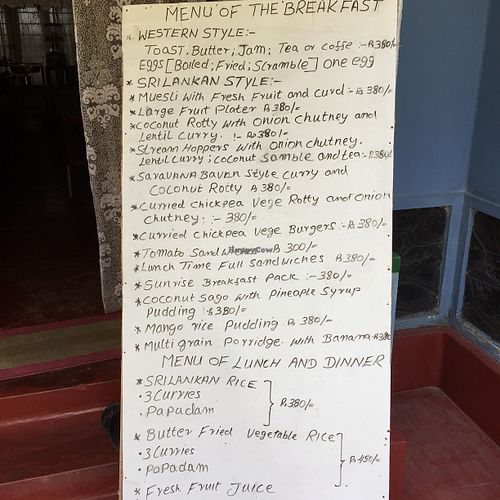 MENU OF THE BREAKFAST
WESTERN STYLE:-
TOAST, Butter; Jam; Tea or coffe :-Rs380/-
Eggs [Boiled; Fried; Scramble] one egg
* SRILANKAN STYLE:-
* Muesli with Fresh Fruit and curd:- Rs 380/-
* Large Fruit Plater Rs380/=
* Coconut Rotty with Onion chutney and
Lentil Curry. :- Rs380/=
* Stream Hoppers with Onion chutney,
Lentil curry; coconut Samble and tea:- Rs380/-
* SARAVANA BAVEN Style curry and
Coconut Rotty Rs380/=
* Curried chickpea Vege Rotty and Onion
chutney: :- 380/=
* Curried chickpea vege Burgers:- Rs380/-
* Tomato Sandwiches Rs 300/=
HappyCow
* Lunch Time Full Sandwiches Rs380/=
* Sunrise Breakfast Pack :-380/=
* Coconut Sago with Pineaple Syrup
Pudding :Rs380/=
* Mango rice Pudding. Rs 380/=
* Multi grain Porridge with Banana Rs380/=
MENU OF LUNCH AND DINNER
* SRILANKAN RICE
• 3 Curries
• Papadam
Rs380/=
* Butter Fried Vegetable Rice
• 3 Curries
• Papadam
Rs450/=
* Fresh Fruit Juice